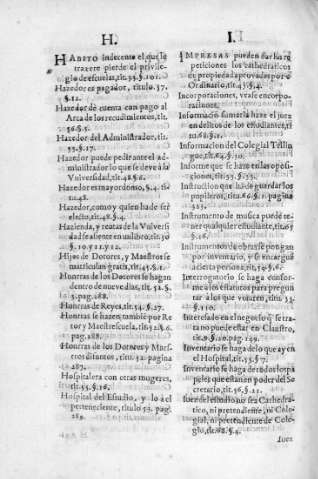 H.
HABITO indecente el que le
traxere pierde el privile-
gio de escuelas, tit. 35. §. 101.
Hazedor es pagador, titulo. 37.
§. 12.
Hazedor dé cuenta con pago al
Arca de los recudimientos, tit.
36. §. 5.
Hazedor del Administrador, tit.
35. §. 17.
Hazedor puede pedir ante el ad-
ministrador lo que se deve à la
Vniversidad, tit. 48. §. 6.
Hazedor es mayordomo, §. 4. ti-
tu. 48.
Hazedor, como y quien ha de ser
electo, tit. 48. §. 4.
Hazienda, y reatas de la Vniver-
sidad se asiente en un libro, tit. 50
§. 10. y 11. y 12.
Hijos de Dotores, y Maestros se
matriculan gratis, tit. 45. §. 1.
Honrras de los Dotores se hagan
dentro de nueve dias, tit. 52. §.
5. pag. 288.
Honrras de Reyes, tit. 54. §. 27.
Honrras se hazen tambien por Re-
tor y Maestrescuela, tit. 52. §. 6.
pag. 288.
Honrras de los Dotores y Maes-
tros difuntos, titu. 52. pagina
287.
Hospitalera con otras mugeres,
tit. 55. §. 16.
Hospital del Estudio, y lo a el
perteneciente, titulo 55. pag.
I.
IMPRESAS pueden dar las re
peticiones los cathedraticos
en propiedad aprovadas por el
Ordinario, tit. 43. §. 4.
Incorporaciones, vease incorpo-
raciones.
Informació sumaria haze el juez
en delitos de los estudiantes, ti
Informacion del Colegial Trilin
gue, tit. 64. §. 30.
Informe que se haze en las oposi-
ciones, tit. 33. §.
Instruccion que ha de guardar los
pupileros, titu. 66. §. pagina
Instrumento de musica puede te-
ner qualquier estudiante, tit. 65
§. 16.
Instrumentos de obras se pongan
por inventario, y se encargue
à cierta persona, tit. 50. §. 6.
Interrogatorio se haga confor-
me a los estatutos para pregun-
tar a los que votaren, titu. 33.
§. 110.
Interesado en el negocio q̃ se tra-
ta no puede estar en Claustro,
tit. 9. §. 10. pag. 149.
Inventario se haga de lo que ay en
el Hospital, tit. 55. §. 7.
Inventario se haga de todos los pa
peles que estan en poder del Se
cretario, tit. §. 11.
Juez del estudio no sea Cathedra-
tico, ni pretendiente, ni Cole-
gial, ni pretendiente de Cole-
gio, tit. 68. §. 4.
Juez